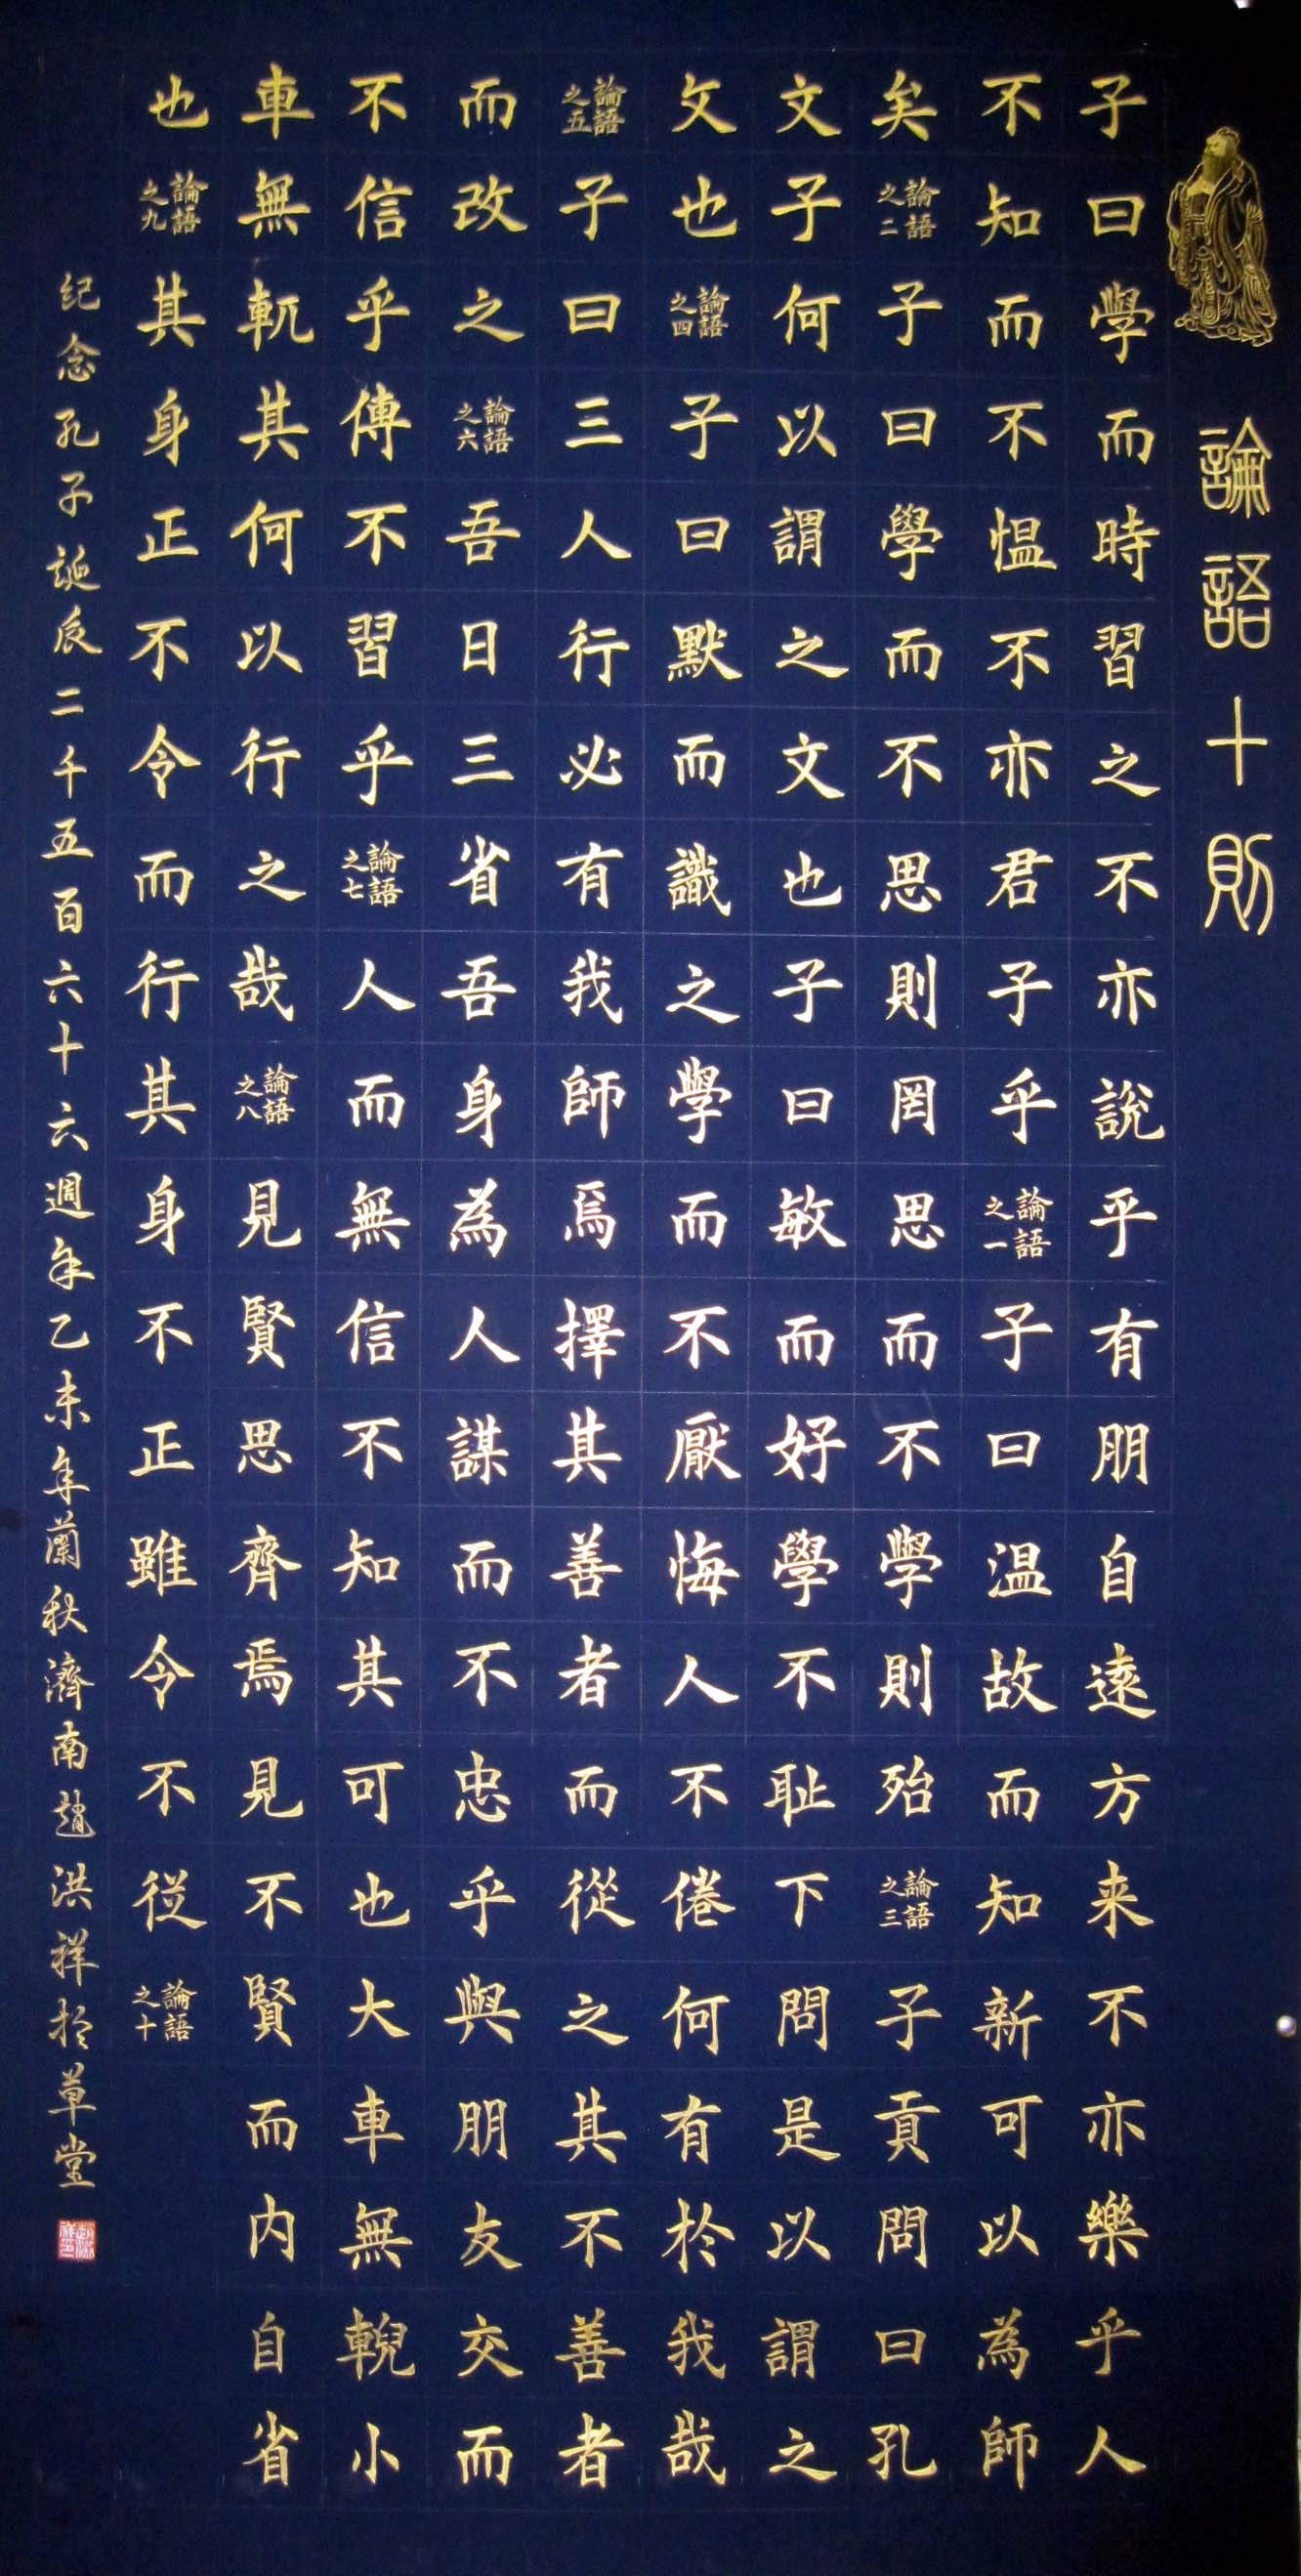 論語十則
子曰學而時習之不亦說乎有朋自遠方来不亦樂乎人
不知而不愠不亦君子乎論語之一子曰温故而知新可以為師
矣論語之二子曰學而不思則罔思而不學則殆論語之三子貢問曰孔
文子何以謂之文也子曰敏而好學不耻下問是以謂之
文也論語之四子曰默而識之學而不厭悔人不倦何有於我哉
論語之五子曰三人行必有我師焉擇其善者而從之其不善者
而改之論語之六吾日三省吾身為人謀而不忠乎與朋友交而
不信乎傳不習乎論語之七人而無信不知其可也大車無輗小
車無軏其何以行之哉論語之八見賢思齊焉見不賢而内自省
也論語之九其身正不令而行其身不正雖令不從論語之十
纪念孔子誕辰二千五百六十六週年乙未年蘭秋濟南趙洪祥於草堂